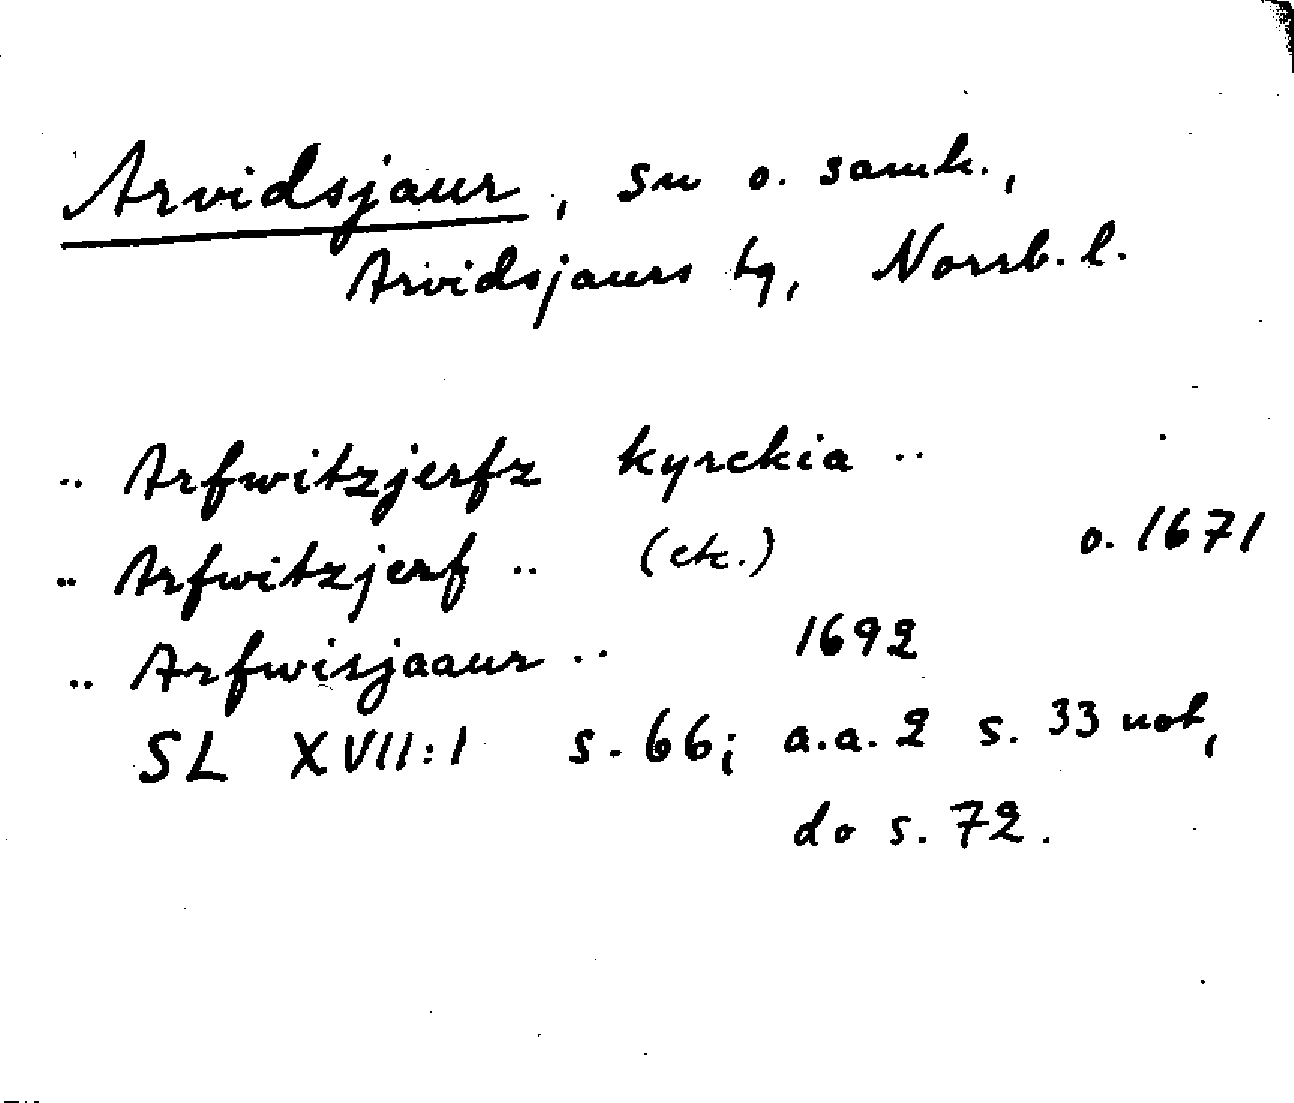 Arvidsjaur, sn o. samh.,
Arvidsjaurs tg, Norrb. l.
.. Arfwitzjerfz kyrckia ..
.. Arfwitzjerf .. (etc.) o. 1671
.. Arfwisjaaur .. 1692
SL XVII:1 s. 66; a.a. 2 s. 33 not,
do s. 72.